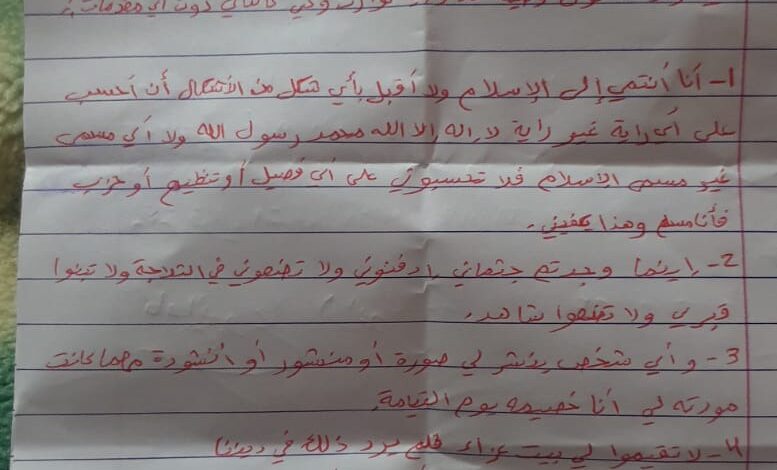 دون أي مقدمات:
1- أنا أنتمي إلى الإسلام ولا أقبل بأي شكل من الأشكال أن أحسب
على أي راية غير راية لا إله إلا الله محمد رسول الله ولا أي مسمى
غير مسمى الإسلام فلا تحسبوني على أي فصيل أو تنظيم أو حزب
فأنا مسلم وهذا يكفيني.
2- اينما وجدتم جثماني ادفنوني ولا تضعوني في الثلاجة ولا تبنوا
قبري ولا تضعوا شاهد.
3- وأي شخص ينشر لي صورة أو منشور أو أنشودة مهما كانت
مودته لي أنا خصيمه يوم القيامة.
4- لا تقيموا لي بيت عزاء فلم يرد ذلك في ديننا